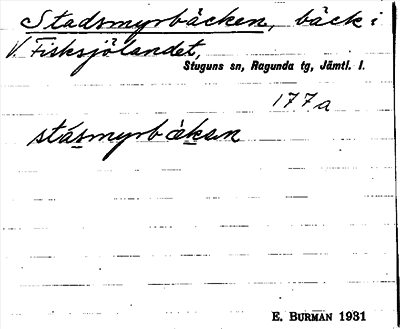 Stadsmyrbäcken, bäck i
V. Fisksjölandet,
Stuguns sn, Ragunda tg, Jämtl. l.
177a
stásmyrbèkən
E. BURMAN 1931